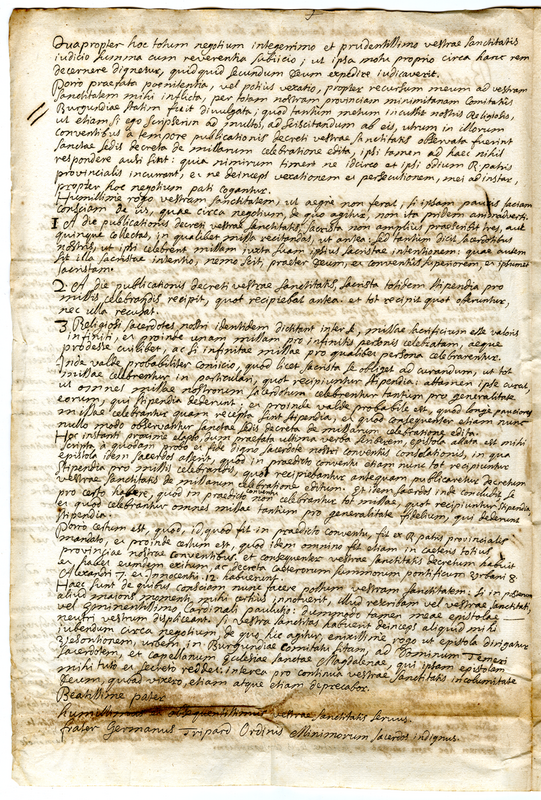 Quapropter hoc totum negotium integerrimo et prudentissimo vestrae sanctitatis
iudicio summa cum reverentia subiicio; ut ipsa motu proprio circa hanc rem
decernere dignetur, quidquid secundum Deum expedire iudicaverit.
Porro praefata poenitentia, vel potius vexatio, propter recursum meum ad vestram
sanctitatem mihi inflicta, per totam nostram provinciam minimitanam Comitatus
Burgundiae statim fuit divulgata; quod tantum metum incussit nostris Religiosis,
ut etiam si ego scripserim ad multos, ad sciscitandum ab eis, utrum in illorum
conventibus a tempore publicationis decreti vestrae sanctitatis observata fuerint
sanctae sedis decreta de missarum celebratione edita, ipsi tamen ad haec nihil
respondere ausi sint: quia nimirum timent ne idcirco et ipsi odium R. patris
provincialis incurrant, et ne deinceps vexationem et persecutionem, mei ad instar,
propter hoc negotium pati cogantur.
Humillime rogo vestram sanctitatem, ut aegre non ferat, si ipsam paucis faciam
consciam de iis, quae circa negotium, de quo agitur, non ita pridem animadverti.
1 A die publicationis decreti vestrae sanctitatis, sacrista non amplius praescribit tres, aut
quinque collectas, in qualibet missa recitandas, ut antea: sed tantum dicit sacerdotibus
nostris, ut ipsi celebrent missam iuxta suam ipsius sacristae intentionem: quae autem
sit illa sacristae intentio, nemo scit, praeter Deum, et conventus superiorem, et ipsummet
sacristam.
2. A die publicationis decreti vestrae sanctitatis, sacrista totidem stipendia pro
missis celebrandis recipit, quot recipiebat antea: et tot recipit quot offeruntur,
nec ulla recusat.
3. Religiosi sacerdotes nostri identidem dictitant inter se, missae sacrificium esse valoris
infiniti, et proinde unam missam pro infinitis personis celebratam, aeque
prodesse cuilibet, ac si infinitae missae pro qualibet persona celebrarentur.
Inde valde probabiliter coniicio, quod licet sacrista se obliget ad curandum, ut tot
missae celebrentur in particulari, quot recipiuntur stipendia: attamen ipse curat,
ut omnes missae nostrorum sacerdotum celebrentur tantum pro generalitate
eorum, qui stipendia dederunt. et proinde valde probabile est, quod longe pauciores
missae celebrantur quam recepta sint stipendia: et quod consequenter etiam nunc
nullo modo observantur sanctae sedis decreta de missarum celebratione edita.
Hoc instanti, proxime elapso dum praefata ultima verba scriberem, epistola allata est mihi
scripta a quodam probo et fide digno sacerdote nostri conventus consolationis, in qua
epistola idem sacerdos asserit, quod in praedicto conventu etiam nunc tot recipiuntur
stipendia pro missis celebrandis, quot recipiebantur antequam publicaretur decretum
vestrae sanctitatis de missarum celebratione editum. Et idem sacerdos inde concludit, se
pro certo habere, quod in praedicto conventu non celebrentur tot missae, quot recipiuntur stipendia
et quod celebrentur omnes missae tantum pro generalitate fidelium, qui dederunt
stipendia.
Porro certum est, quod, id, quod fit in praedicto conventu, fit ex R. patris provincialis
mandato, et proinde certum est, quod idem omnino fit etiam in caeteris totius
provinciae nostrae conventibus. et consequenter vestrae sanctitatis decretum habuit
et habet eumdem exitum, ac decreta caeterorum summorum pontificum Urbani 8
Alexandri 7. et innocentii. 12. habuerunt.
Haec sunt de quibus consciam nunc facere possum vestram sanctitatem: si in posterum
aliud maioris momenti mihi certius innotuerit, illud rescribam vel vestrae sanctitati,
vel Eminentissimo Cardinali paulutio: dummodo tamen meae epistolae
neutri vestrum displiceant. Si vestra sanctitas habuerit deinceps aliquid mihi
iubendum circa negotium de quo hic agitur, enixissime rogo ut epistola dirigatur
Vezontionem, urbem in Burgundiae Comitatu sitam, ad Dominum
sacerdotem, et capellanum Ecclesiae sanctae Magdalenae, qui ipsam epistolam
mihi tuto et secreto reddet: interea pro continua vestrae sanctitatis incolumitate
Deum, quoad vixero, etiam atque etiam deprecabor.
Beatissime pater
humillimus et obsequentissimus vestrae sanctitatis servus.
frater Germanus Tripard Ordinis Minimorum sacerdos indignus.